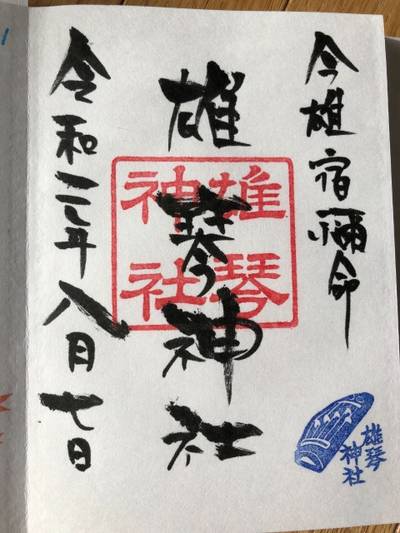 今雄宿禰命
雄琴神社
雄琴
神社
令和二年八月七日
雄琴
神社